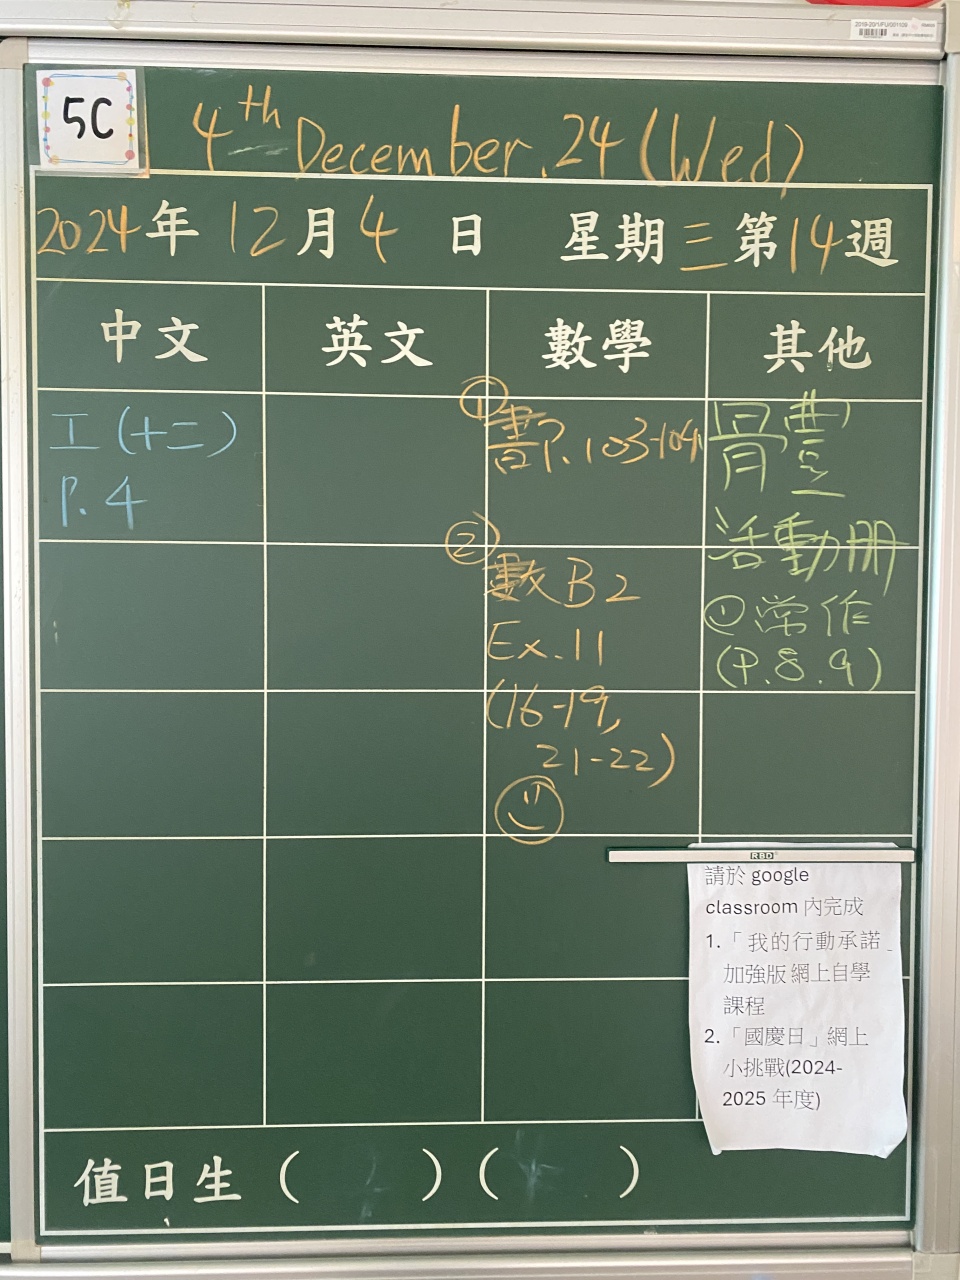 2019-20/1/FU/001109
5C
4th December.24 (Wed)
2024年12月4日 星期三第14週
中文 英文 數學 其他
工(十二)
P.4
① 書P.103-104
② 數B2
Ex.11
(16-19,
21-22)
體
活動冊
①常作
(P.8.9)
RBD
請於 google
classroom 內完成
1.「我的行動承諾」
加強版 網上自學
課程
2.「國慶日」網上
小挑戰(2024-
2025 年度)
值日生 ( ) ( )